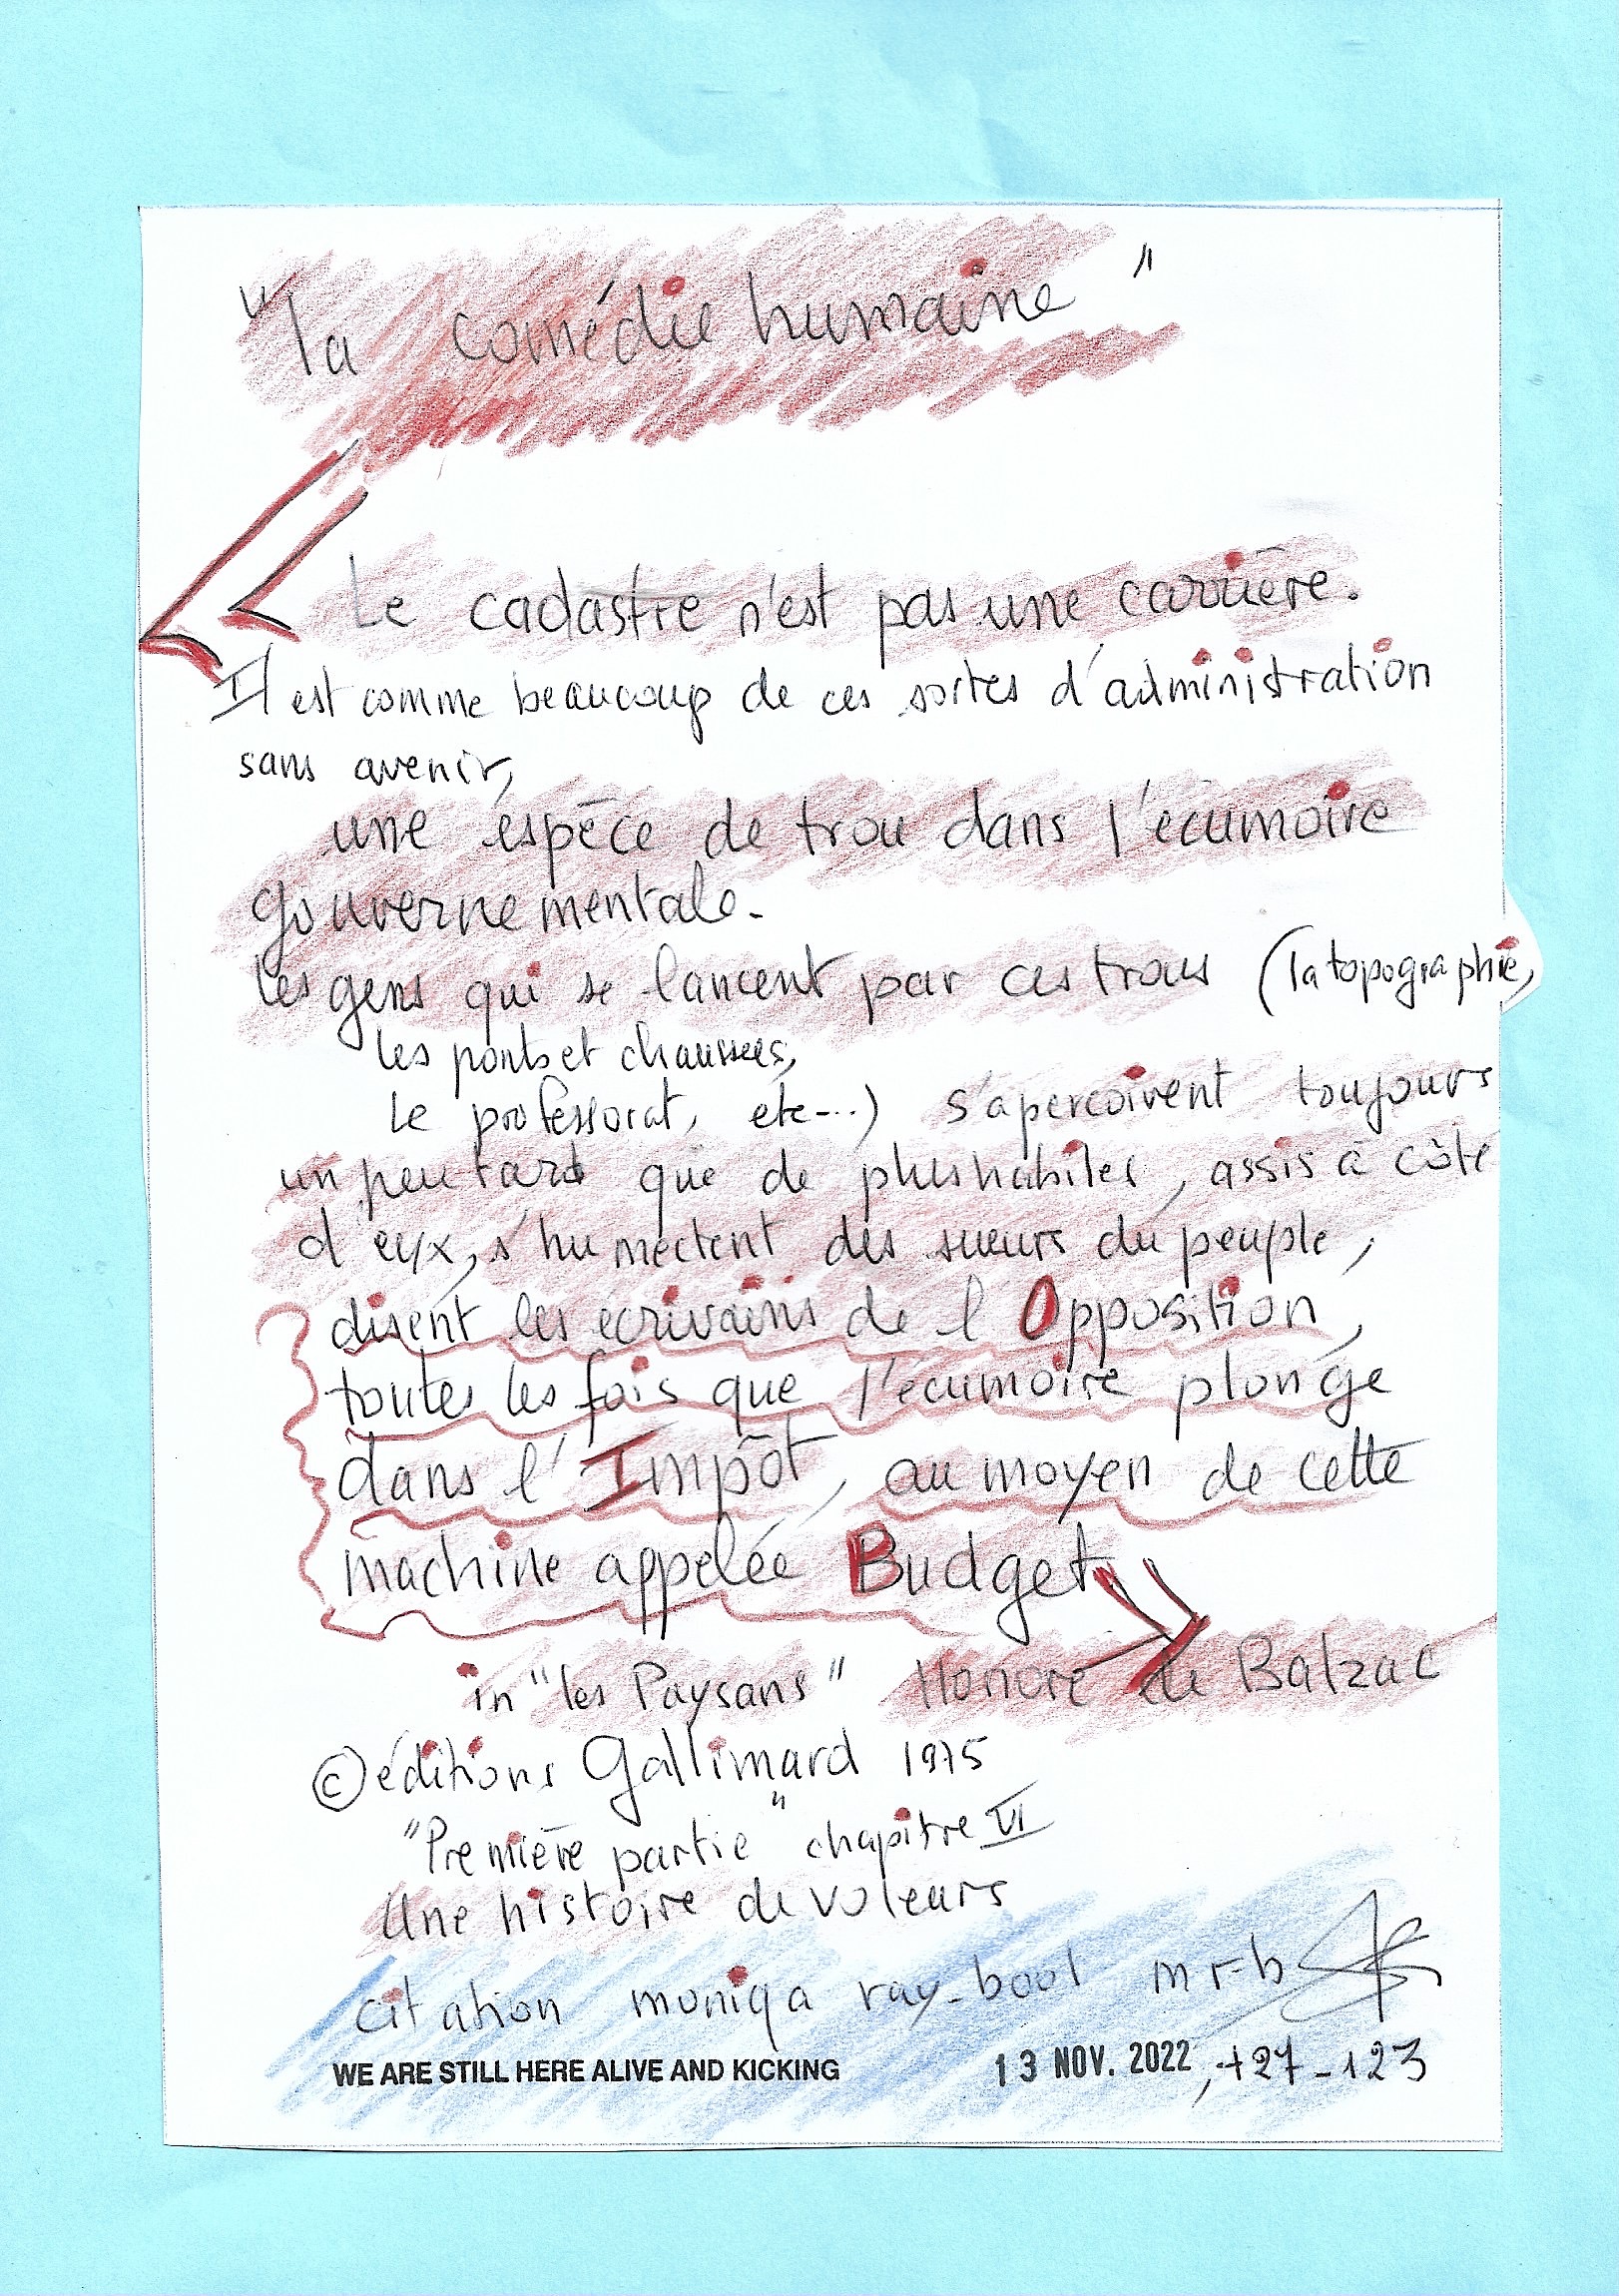 "la comédie humaine"
<< Le cadastre n'est pas une carrière.
Il est comme beaucoup de ces sortes d'administration
sans avenir,
une espèce de trou dans l'écumoire
gouvernementale.
les gens qui se lancent par ces trous (la topographie,
les ponts et chaussées,
le professorat, etc...) s'aperçoivent toujours
un peu tard que de plus habiles, assis à côté
d'eux, s'humectent des sueurs du peuple,
disent les écrivains de l'Opposition,
toutes les fois que l'écumoire plonge
dans l'Impôt, au moyen de cette
machine appelée Budget. >>
in "les Paysans" Honoré de Balzac
© éditions Gallimard 1975
"Première partie" chapitre VI
Une histoire de voleurs
citation moniqa ray-bool mr-b
WE ARE STILL HERE ALIVE AND KICKING 13 NOV. 2022, +27-123